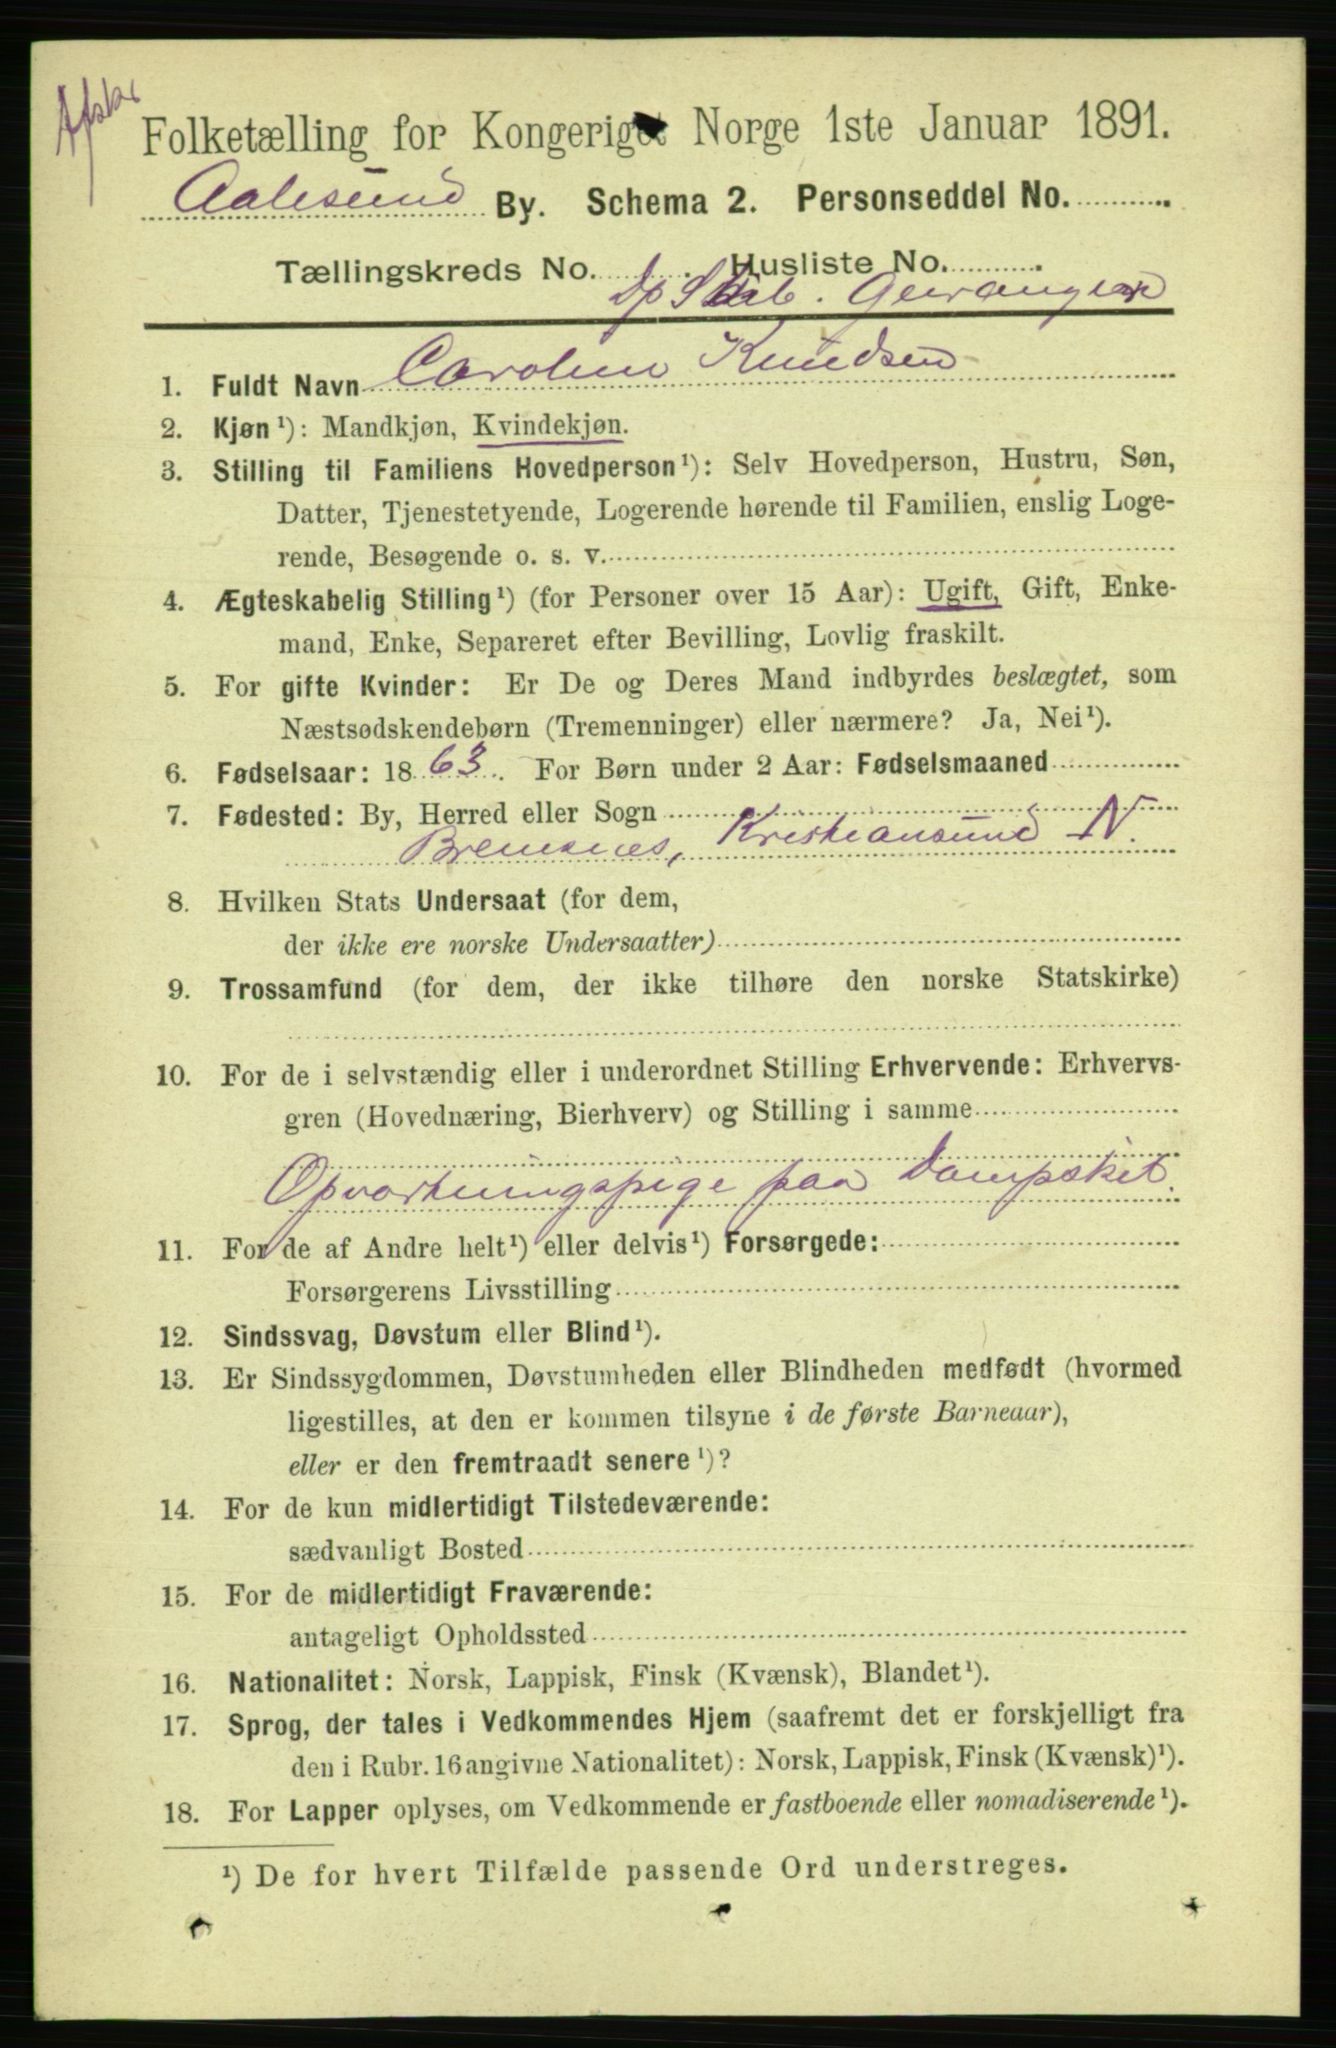 Afskr
Folketælling for Kongeriget Norge 1ste Januar 1891.
Aalesund By. Schema 2. Personseddel No.
Tællingskreds No. Husliste No.
Dp Skib. Geiranger
1. Fuldt Navn Caroline Knudsen
2. Kjøn¹): Mandkjøn, Kvindekjøn.
3. Stilling til Familiens Hovedperson¹): Selv Hovedperson, Hustru, Søn,
Datter, Tjenestetyende, Logerende hørende til Familien, enslig Loge-
rende, Besøgende o. s. v.
4. Ægteskabelig Stilling¹) (for Personer over 15 Aar): Ugift, Gift, Enke-
mand, Enke, Separeret efter Bevilling, Lovlig fraskilt.
5. For gifte Kvinder: Er De og Deres Mand indbyrdes beslægtet, som
Næstsødskendebørn (Tremenninger) eller nærmere? Ja, Nei¹).
6. Fødselsaar: 1863. For Børn under 2 Aar: Fødselsmaaned
7. Fødested: By, Herred eller Sogn
Bremsnes, Kristiansund N.
8. Hvilken Stats Undersaat (for dem,
der ikke ere norske Undersaatter)
9. Trossamfund (for dem, der ikke tilhøre den norske Statskirke)
10. For de i selvstændig eller i underordnet Stilling Erhvervende: Erhvervs-
gren (Hovednæring, Bierhverv) og Stilling i samme
Opvartningspige paa Dampskib.
11. For de af Andre helt¹) eller delvis¹) Forsørgede:
Forsørgerens Livsstilling
12. Sindssvag, Døvstum eller Blind¹).
13. Er Sindssygdommen, Døvstumheden eller Blindheden medfødt (hvormed
ligestilles, at den er kommen tilsyne i de første Barneaar),
eller er den fremtraadt senere¹)?
14. For de kun midlertidigt Tilstedeværende:
sædvanligt Bosted
15. For de midlertidigt Fraværende:
antageligt Opholdssted
16. Nationalitet: Norsk, Lappisk, Finsk (Kvænsk), Blandet¹).
17. Sprog, der tales i Vedkommendes Hjem (saafremt det er forskjelligt fra
den i Rubr. 16 angivne Nationalitet): Norsk, Lappisk, Finsk (Kvænsk)¹).
18. For Lapper oplyses, om Vedkommende er fastboende eller nomadiserende¹).
¹) De for hvert Tilfælde passende Ord understreges.